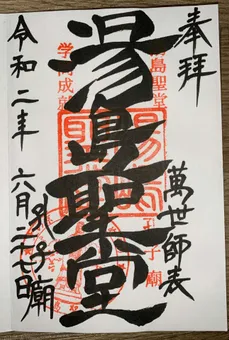 奉拝
萬世師表
湯島聖堂
湯島聖堂
孔子廟
学問成就
孔子廟
令和二年六月二十七日